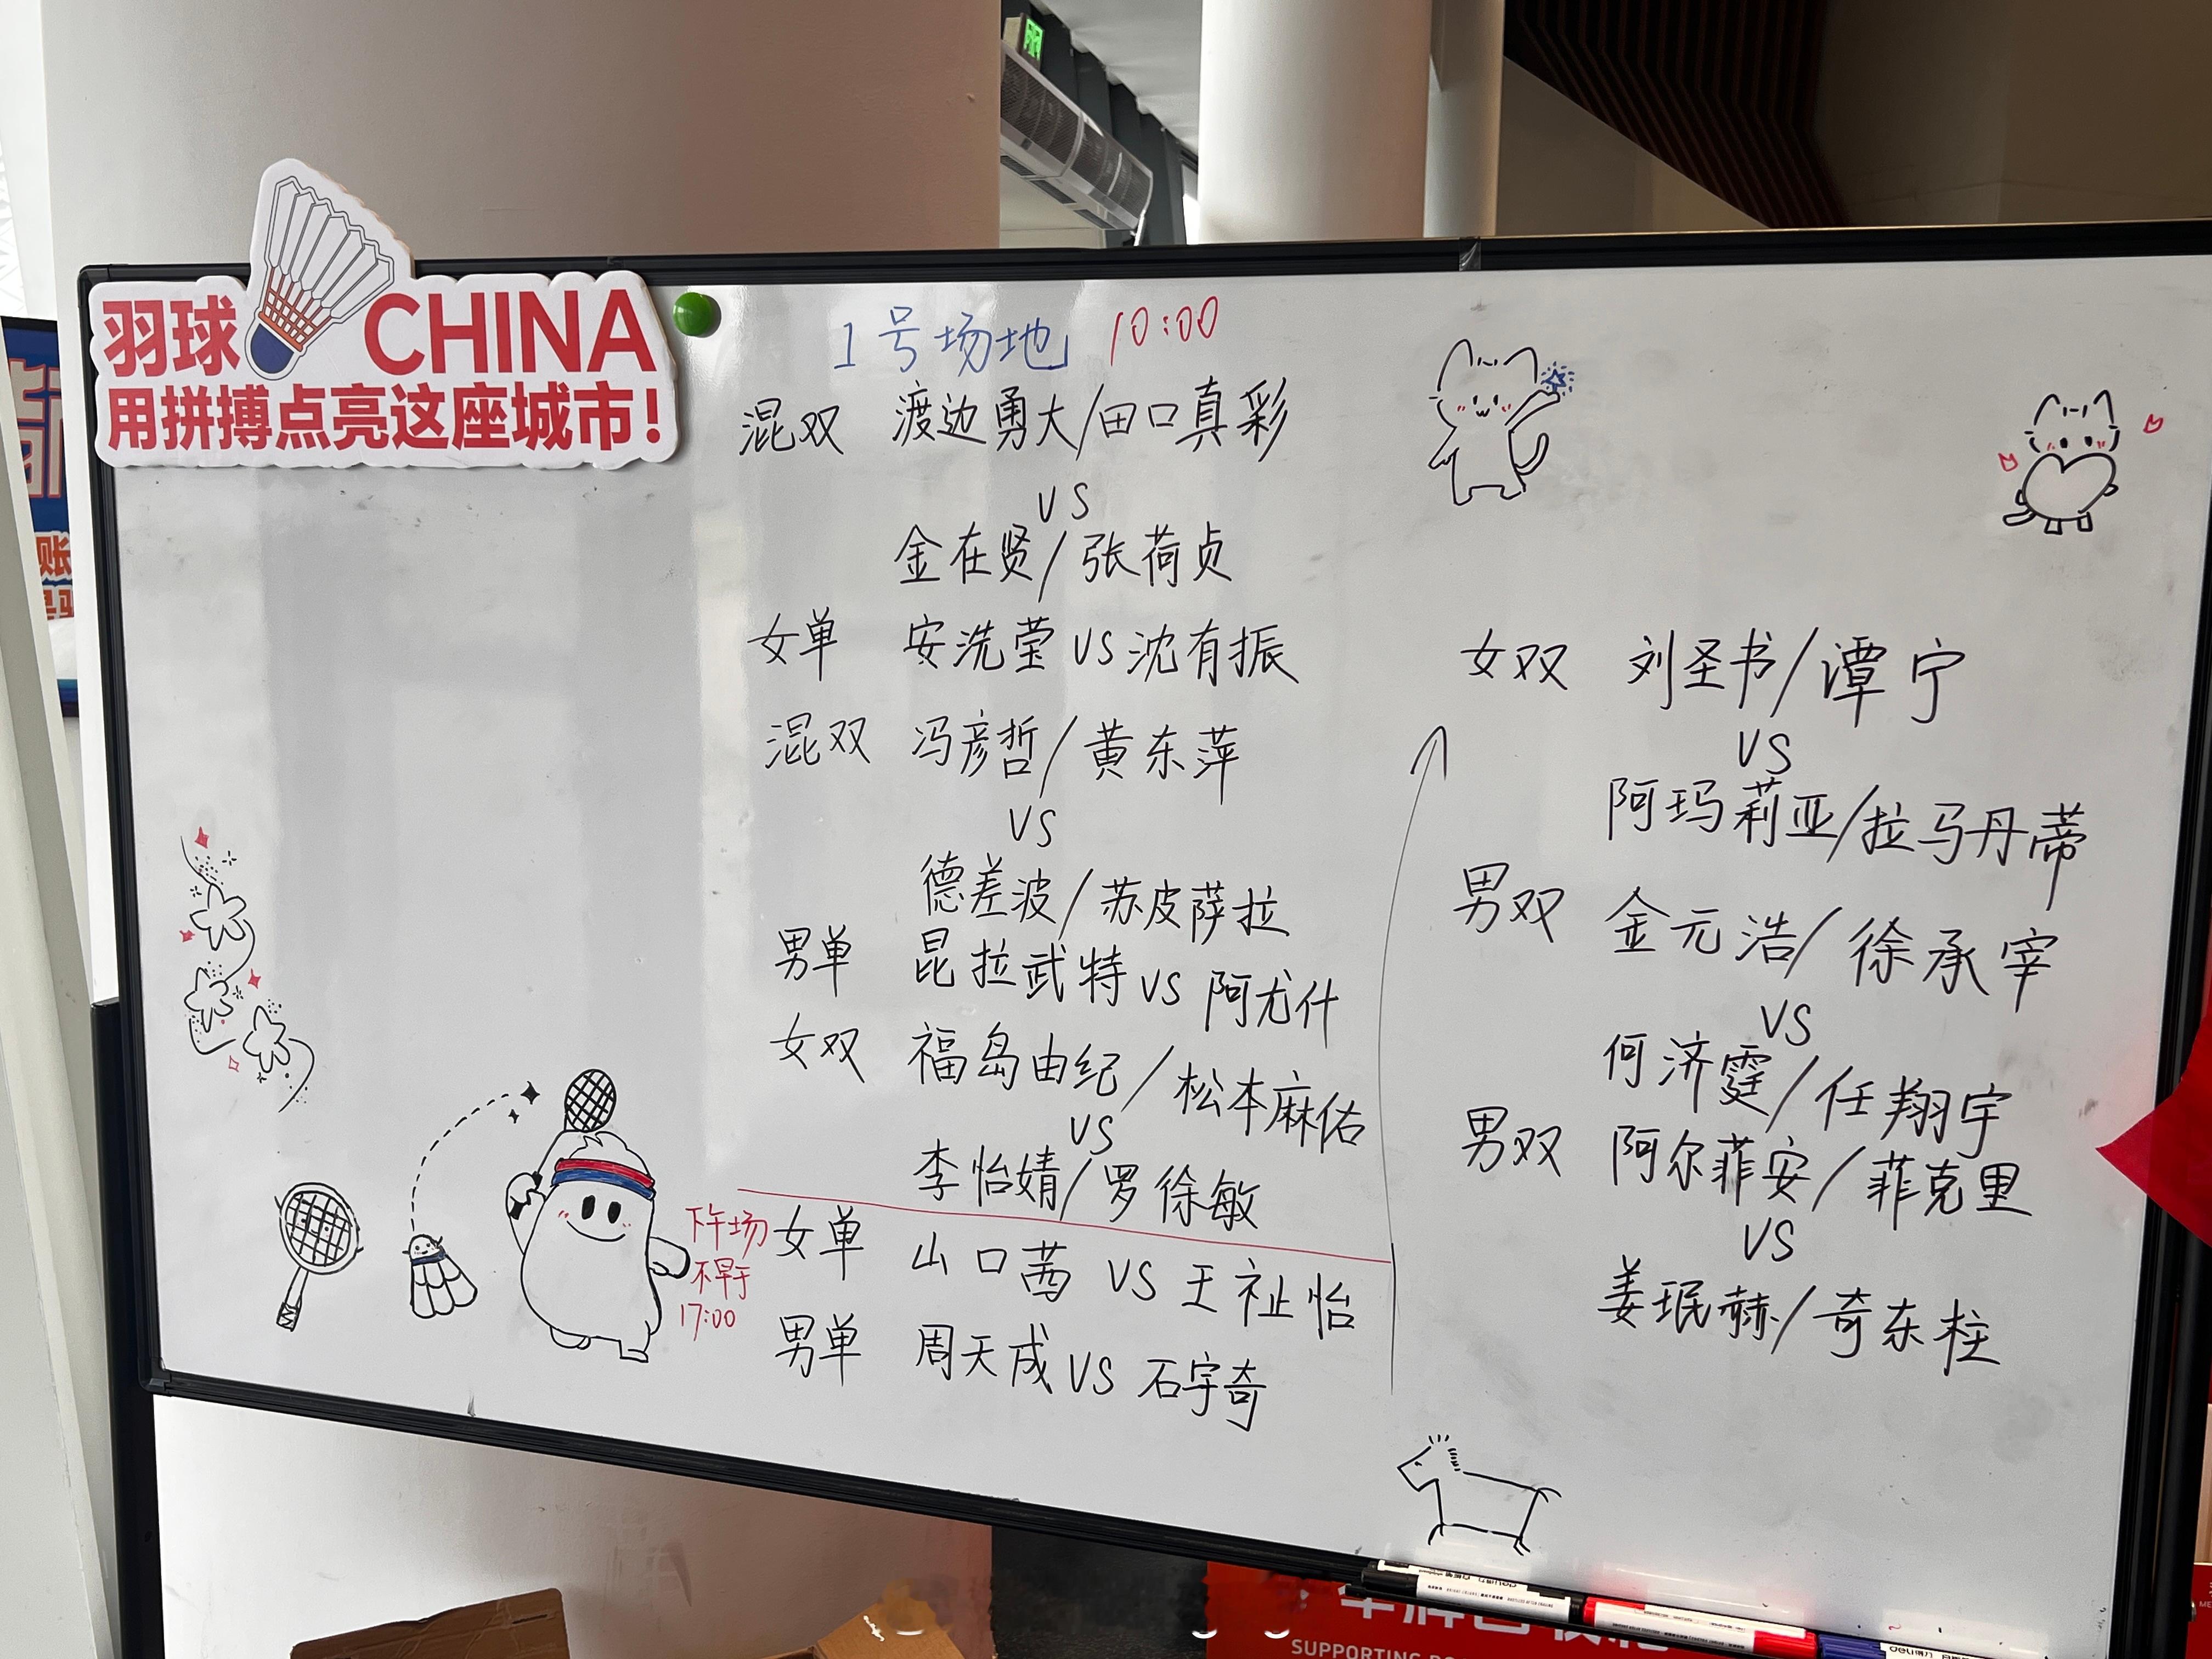 羽球 CHINA
用拼搏点亮这座城市!
1号场地 10:00
混双 渡边勇大/田口真彩
VS
金在贤/张荷贞
女单 安洗莹 VS 沈有振
混双 冯彦哲/黄东萍
VS
德差波/苏皮萨拉
男单 昆拉武特 VS 阿尤什
女双 福岛由纪/松本麻佑
VS
李怡婧/罗徐敏
下午场
不早于
17:00
女单 山口茜 VS 王祉怡
男单 周天成 VS 石宇奇
女双 刘圣书/谭宁
VS
阿玛莉亚/拉马丹蒂
男双 金元浩/徐承宰
VS
何济霆/任翔宇
男双 阿尔菲安/菲克里
VS
姜珉赫/奇东柱
SUPPORTING
deli